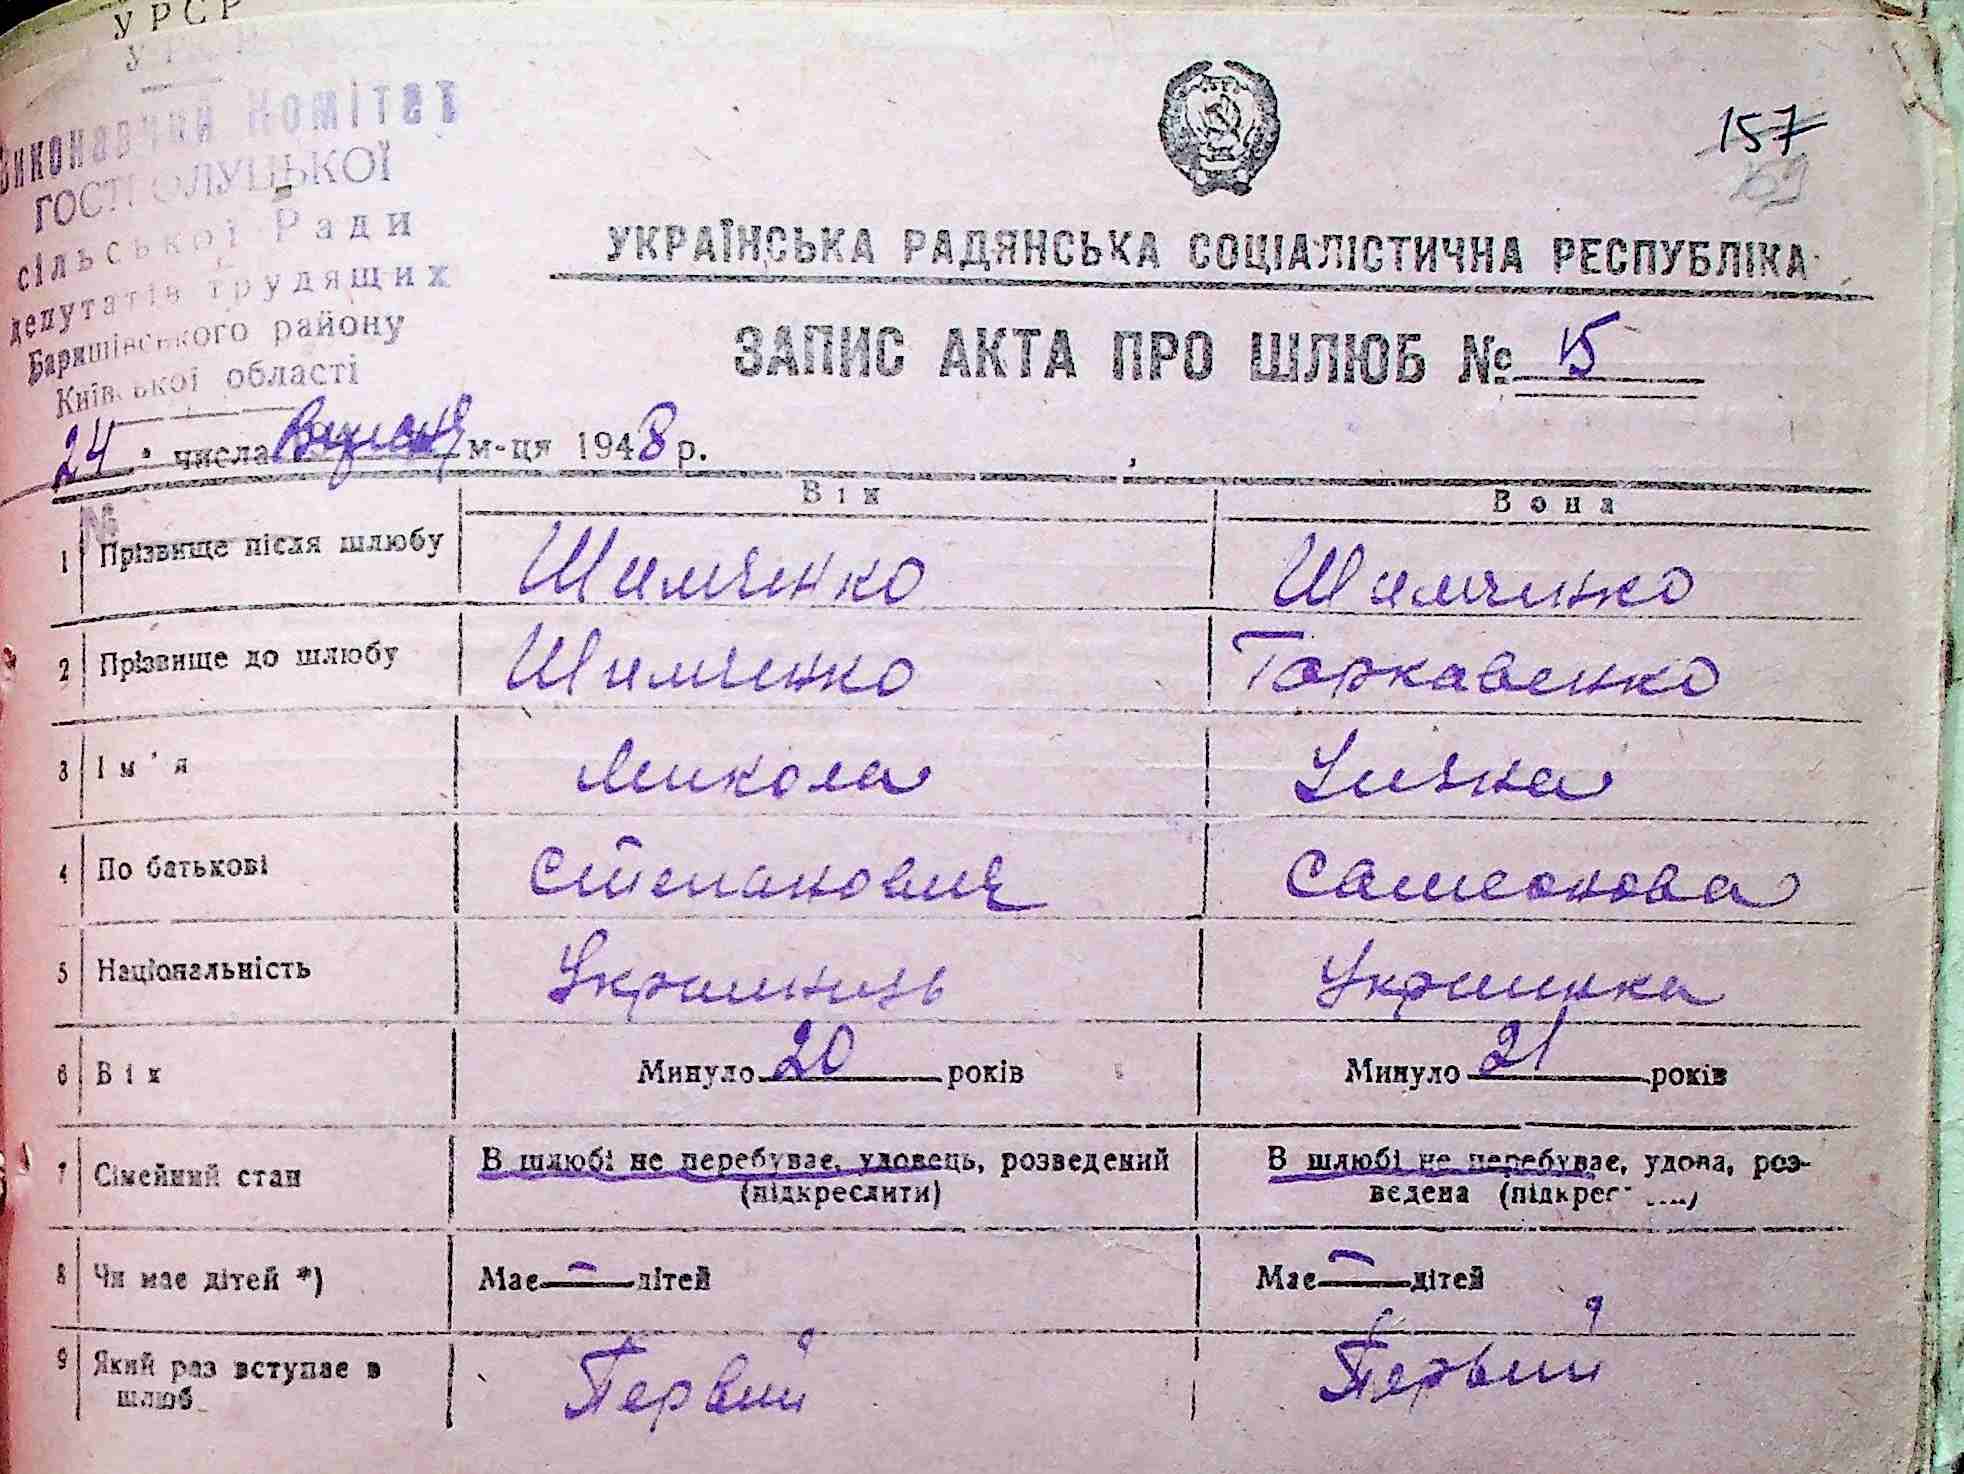 УРСР
УРСР
Виконавчий Комітет
ГОСТРОЛУЦЬКОЇ
сільської Ради
депутатів трудящих
Баришівського району
Київської області
157
159
УКРАЇНСЬКА РАДЯНСЬКА СОЦІАЛІСТИЧНА РЕСПУБЛІКА
ЗАПИС АКТА ПРО ШЛЮБ № 15
24 числа м-ця 1948 р.
Він Вона
№
1 Прізвище після шлюбу Шимченко Шимченко
2 Прізвище до шлюбу Шимченко Торкавенко
3 Ім'я Микола
4 По батькові Степанович Самсонова
5 Національність Украинець Украинка
6 Вік Минуло 20 років Минуло 21 років
7 Сімейний стан В шлюбі не перебуває, удовець, розведений (підкреслити) В шлюбі не перебуває, удова, роз-
ведена (підкреслити)
8 Чи має дітей *) Має — дітей Має — дітей
9 Який раз вступає в шлюб Первий Первый